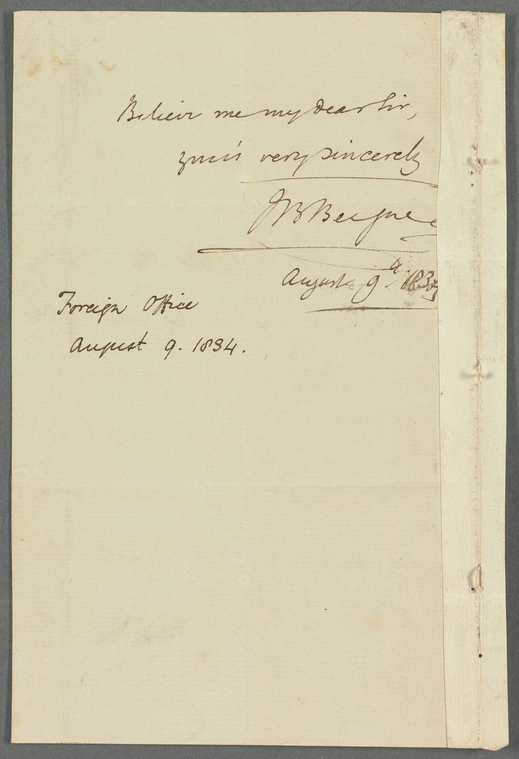 Believe me my dear Sir,
yours very sincerely
JB Bergne
August 9th 1834
Foreign Office
August 9. 1834.